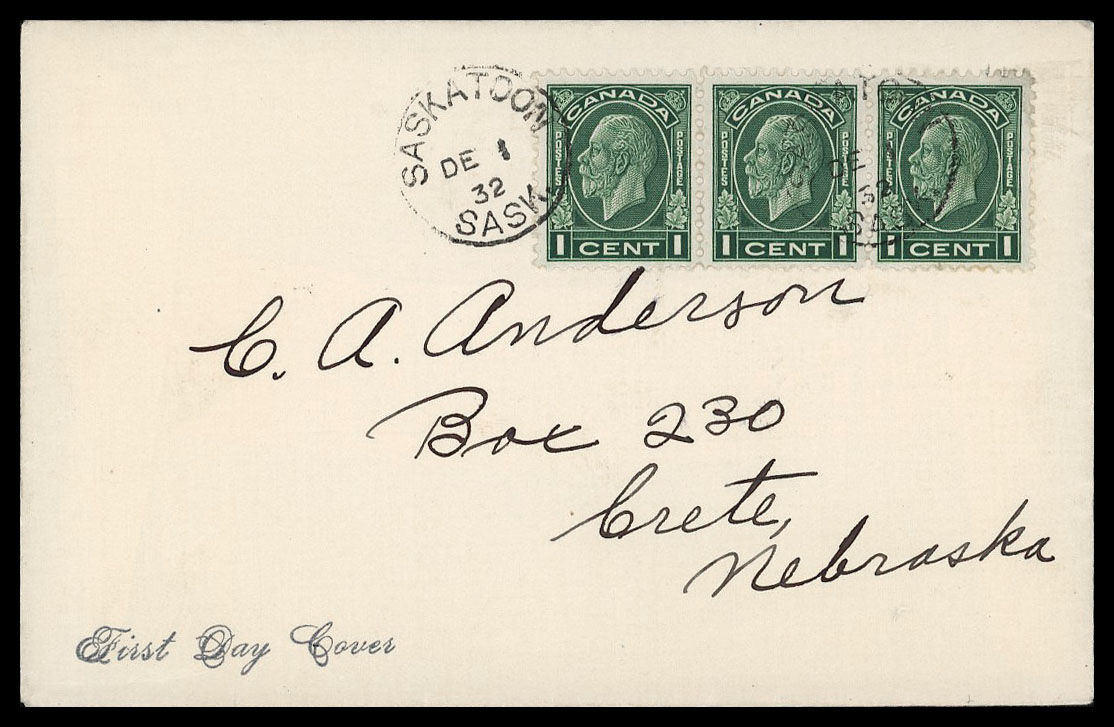 SASKATOON
DE 1
32
SASK.
CANADA
POSTES POSTAGE
1 CENT 1
CANADA
POSTES POSTAGE
1 CENT 1
CANADA
POSTES POSTAGE
1 CENT 1
ATO
DE 1
32
SASK
C. A. Anderson
Box 230
Crete,
Nebraska
First Day Cover